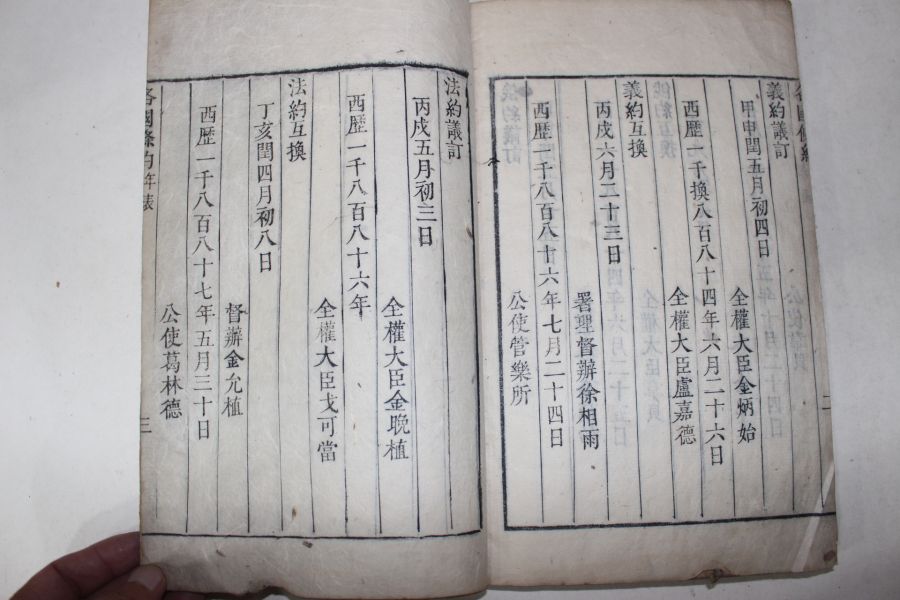 各國條約
二
義約議訂
甲申閏五月初四日
全權大臣金炳始
西歷一千換八百八十四年六月二十六日
全權大臣盧嘉德
義約互換
丙戌六月二十三日
署理督辦徐相雨
西歷一千八百八十六年七月二十四日
公使管樂所
法約議訂
丙戌五月初三日
全權大臣金晚植
西歷一千八百八十六年
全權大臣戈可當
法約互換
丁亥閏四月初八日
督辦金允植
西歷一千八百八十七年五月三十日
公使葛林德
各國條約年表
三